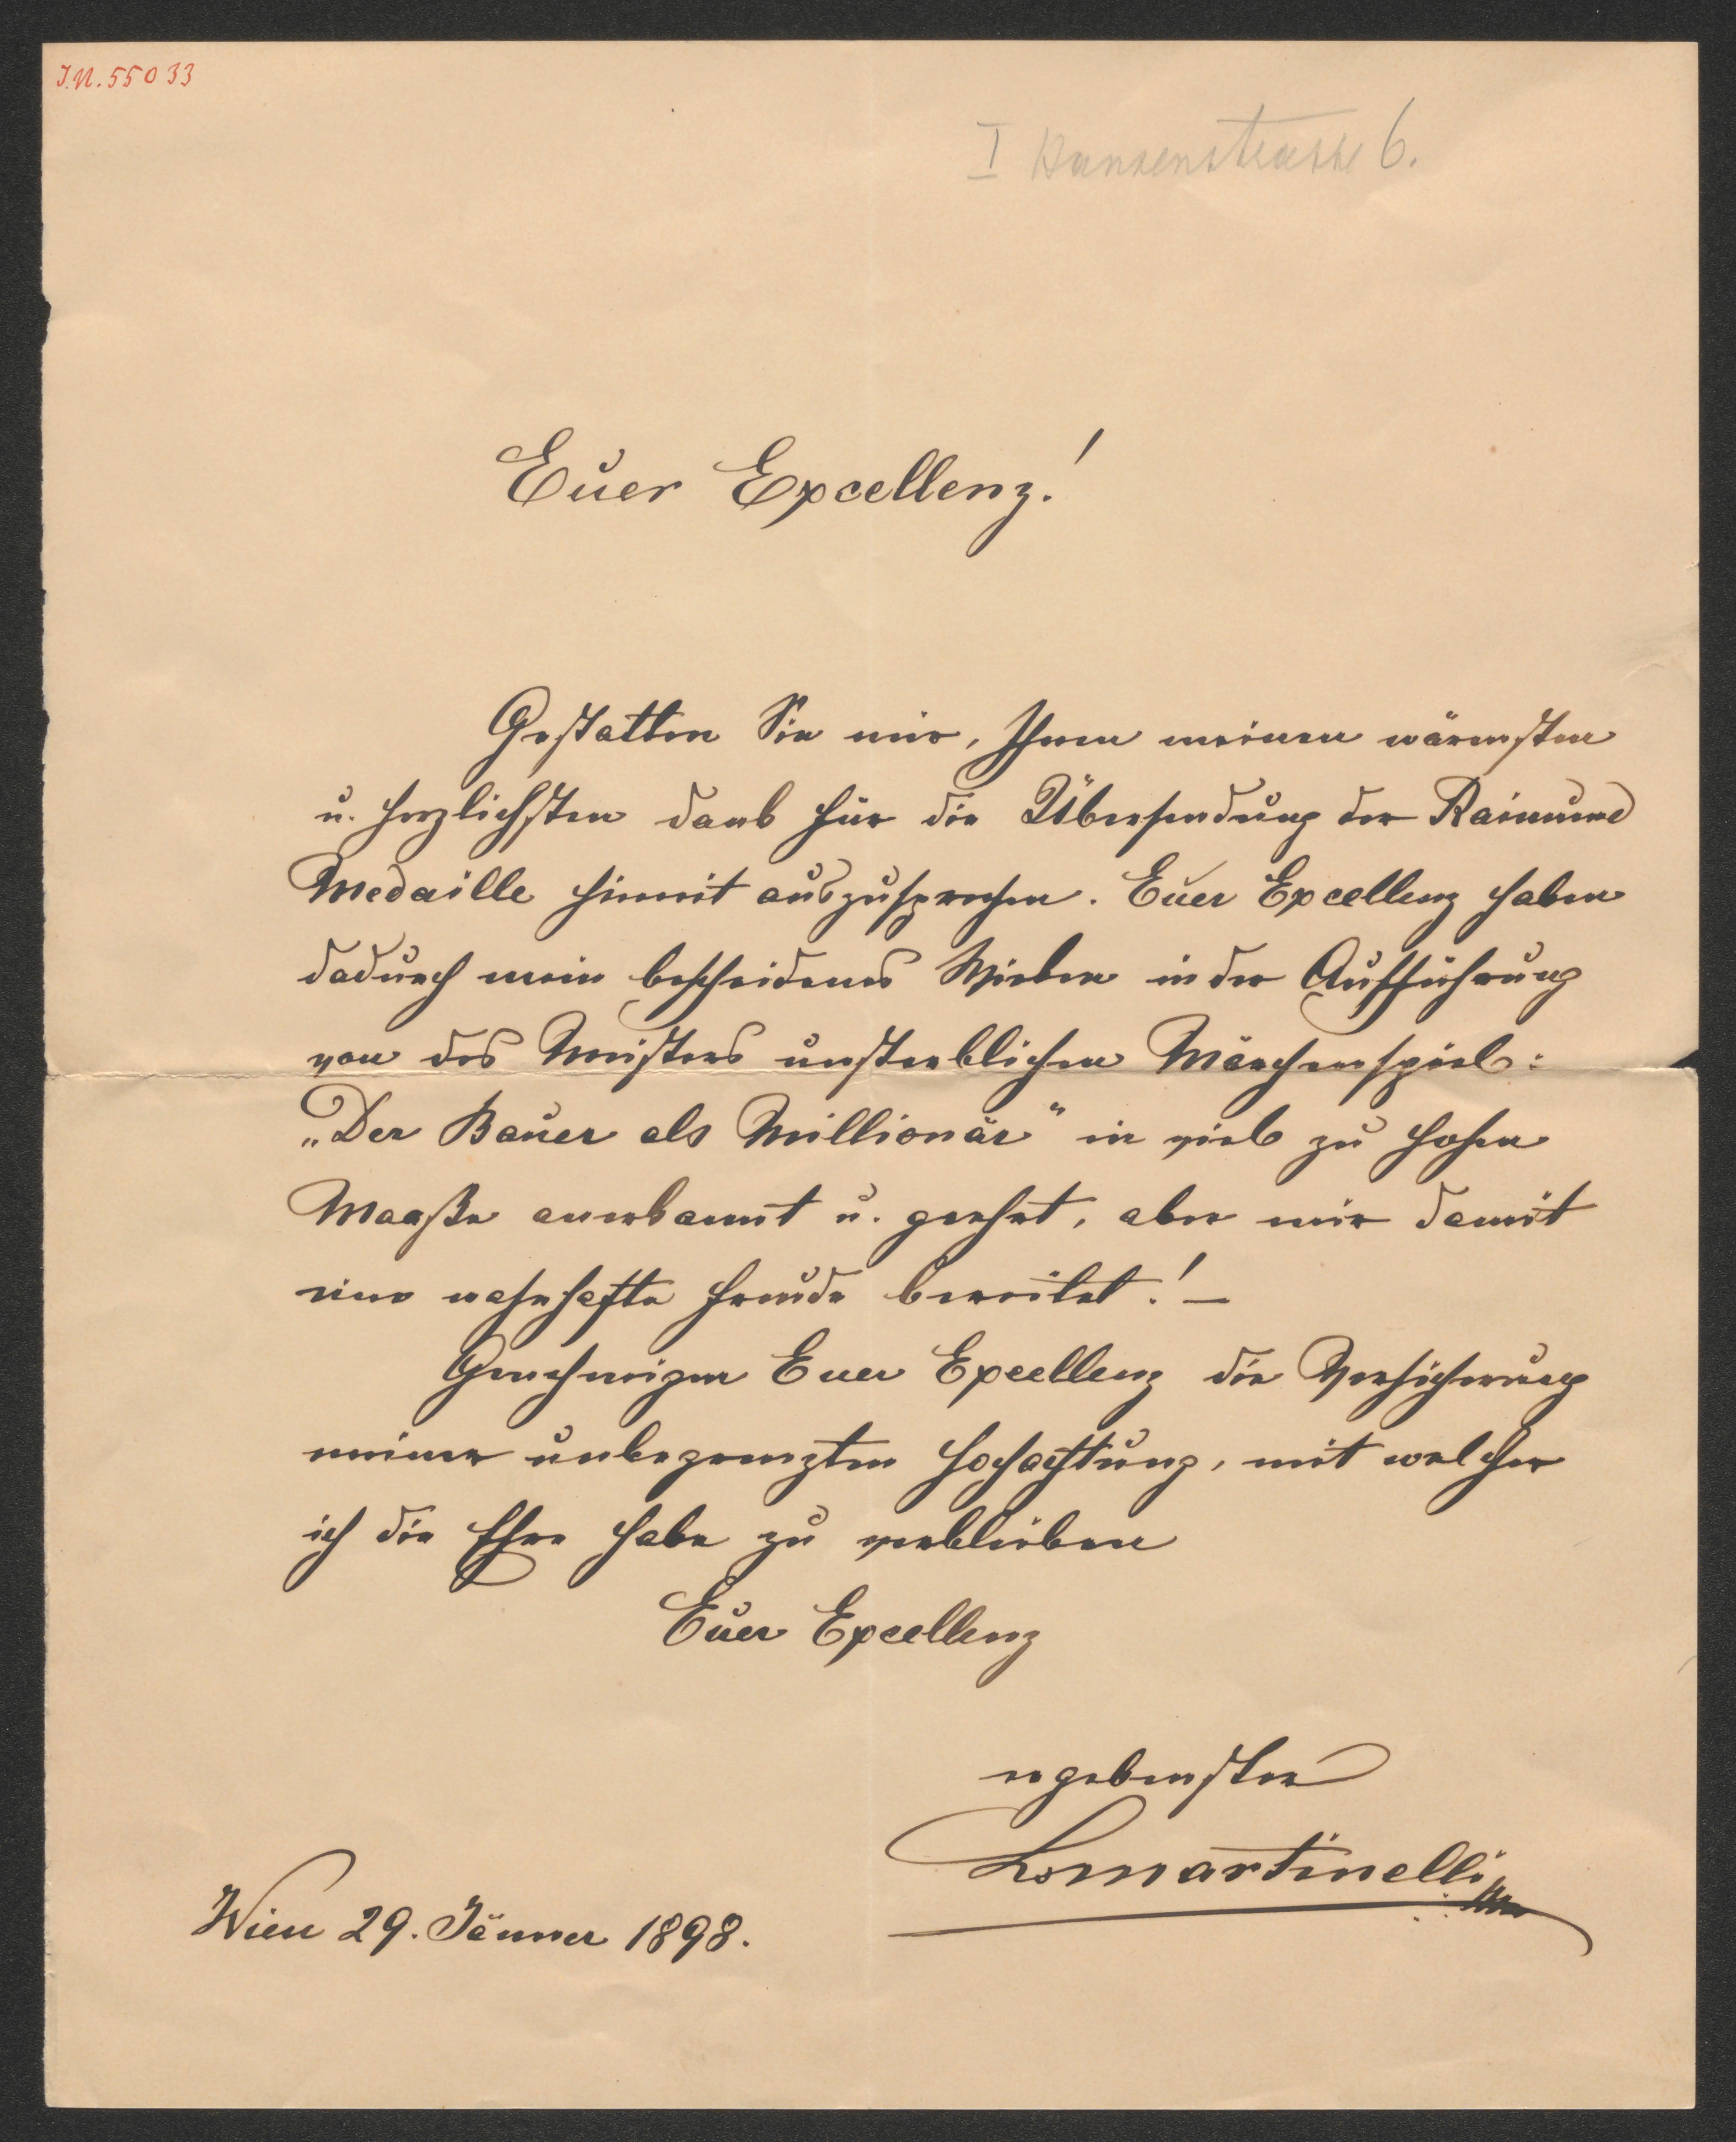 J.N. 55033
I Hansenstrasse 6.
Euer Excellenz!
Gestatten Sie mir, Ihnen meinen wärmsten
u. herzlichsten Dank für die Übersendung der Raimund
Medaille hiemit auszusprechen. Euer Excellenz haben
dadurch mein bescheidenes Wirken in der Aufführung
von des Meisters unsterblichen Märchenspiel:
„Der Bauer als Millionär" in viel zu hohen
Maaße anerkannt u. geehrt, aber mir damit
eine wahrhafte Freude bereitet! –
Genehmigen Euer Excellenz die Versicherung
meiner unbegrenzten Hochachtung, mit welcher
ich die Ehre habe zu verbleiben
Euer Excellenz
ergebenster
LMartinelli
Wien 29. Jänner 1898.